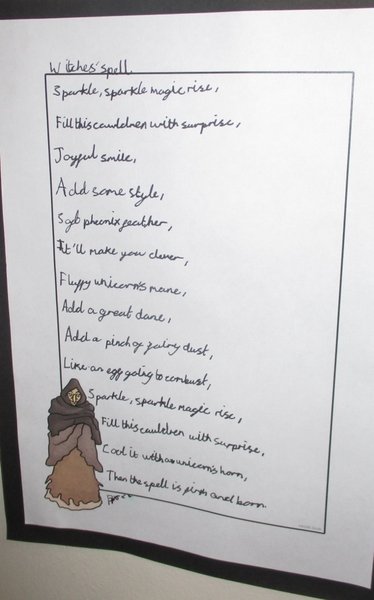 Witches' spell.
Sparkle, sparkle magic rise,
Fill this cauldren with surprise,
Joyful smile,
Add some style,
Sgb pheonix feather,
It'll make you clever,
Fluffy unicorn's mane,
Add a great dane,
Add a pinch of fairy dust,
Like an egg going to combust,
Sparkle, sparkle magic rise,
Fill this cauldren with surprise,
Cool it with a unicorn's horn,
Then the spell is firm and born.